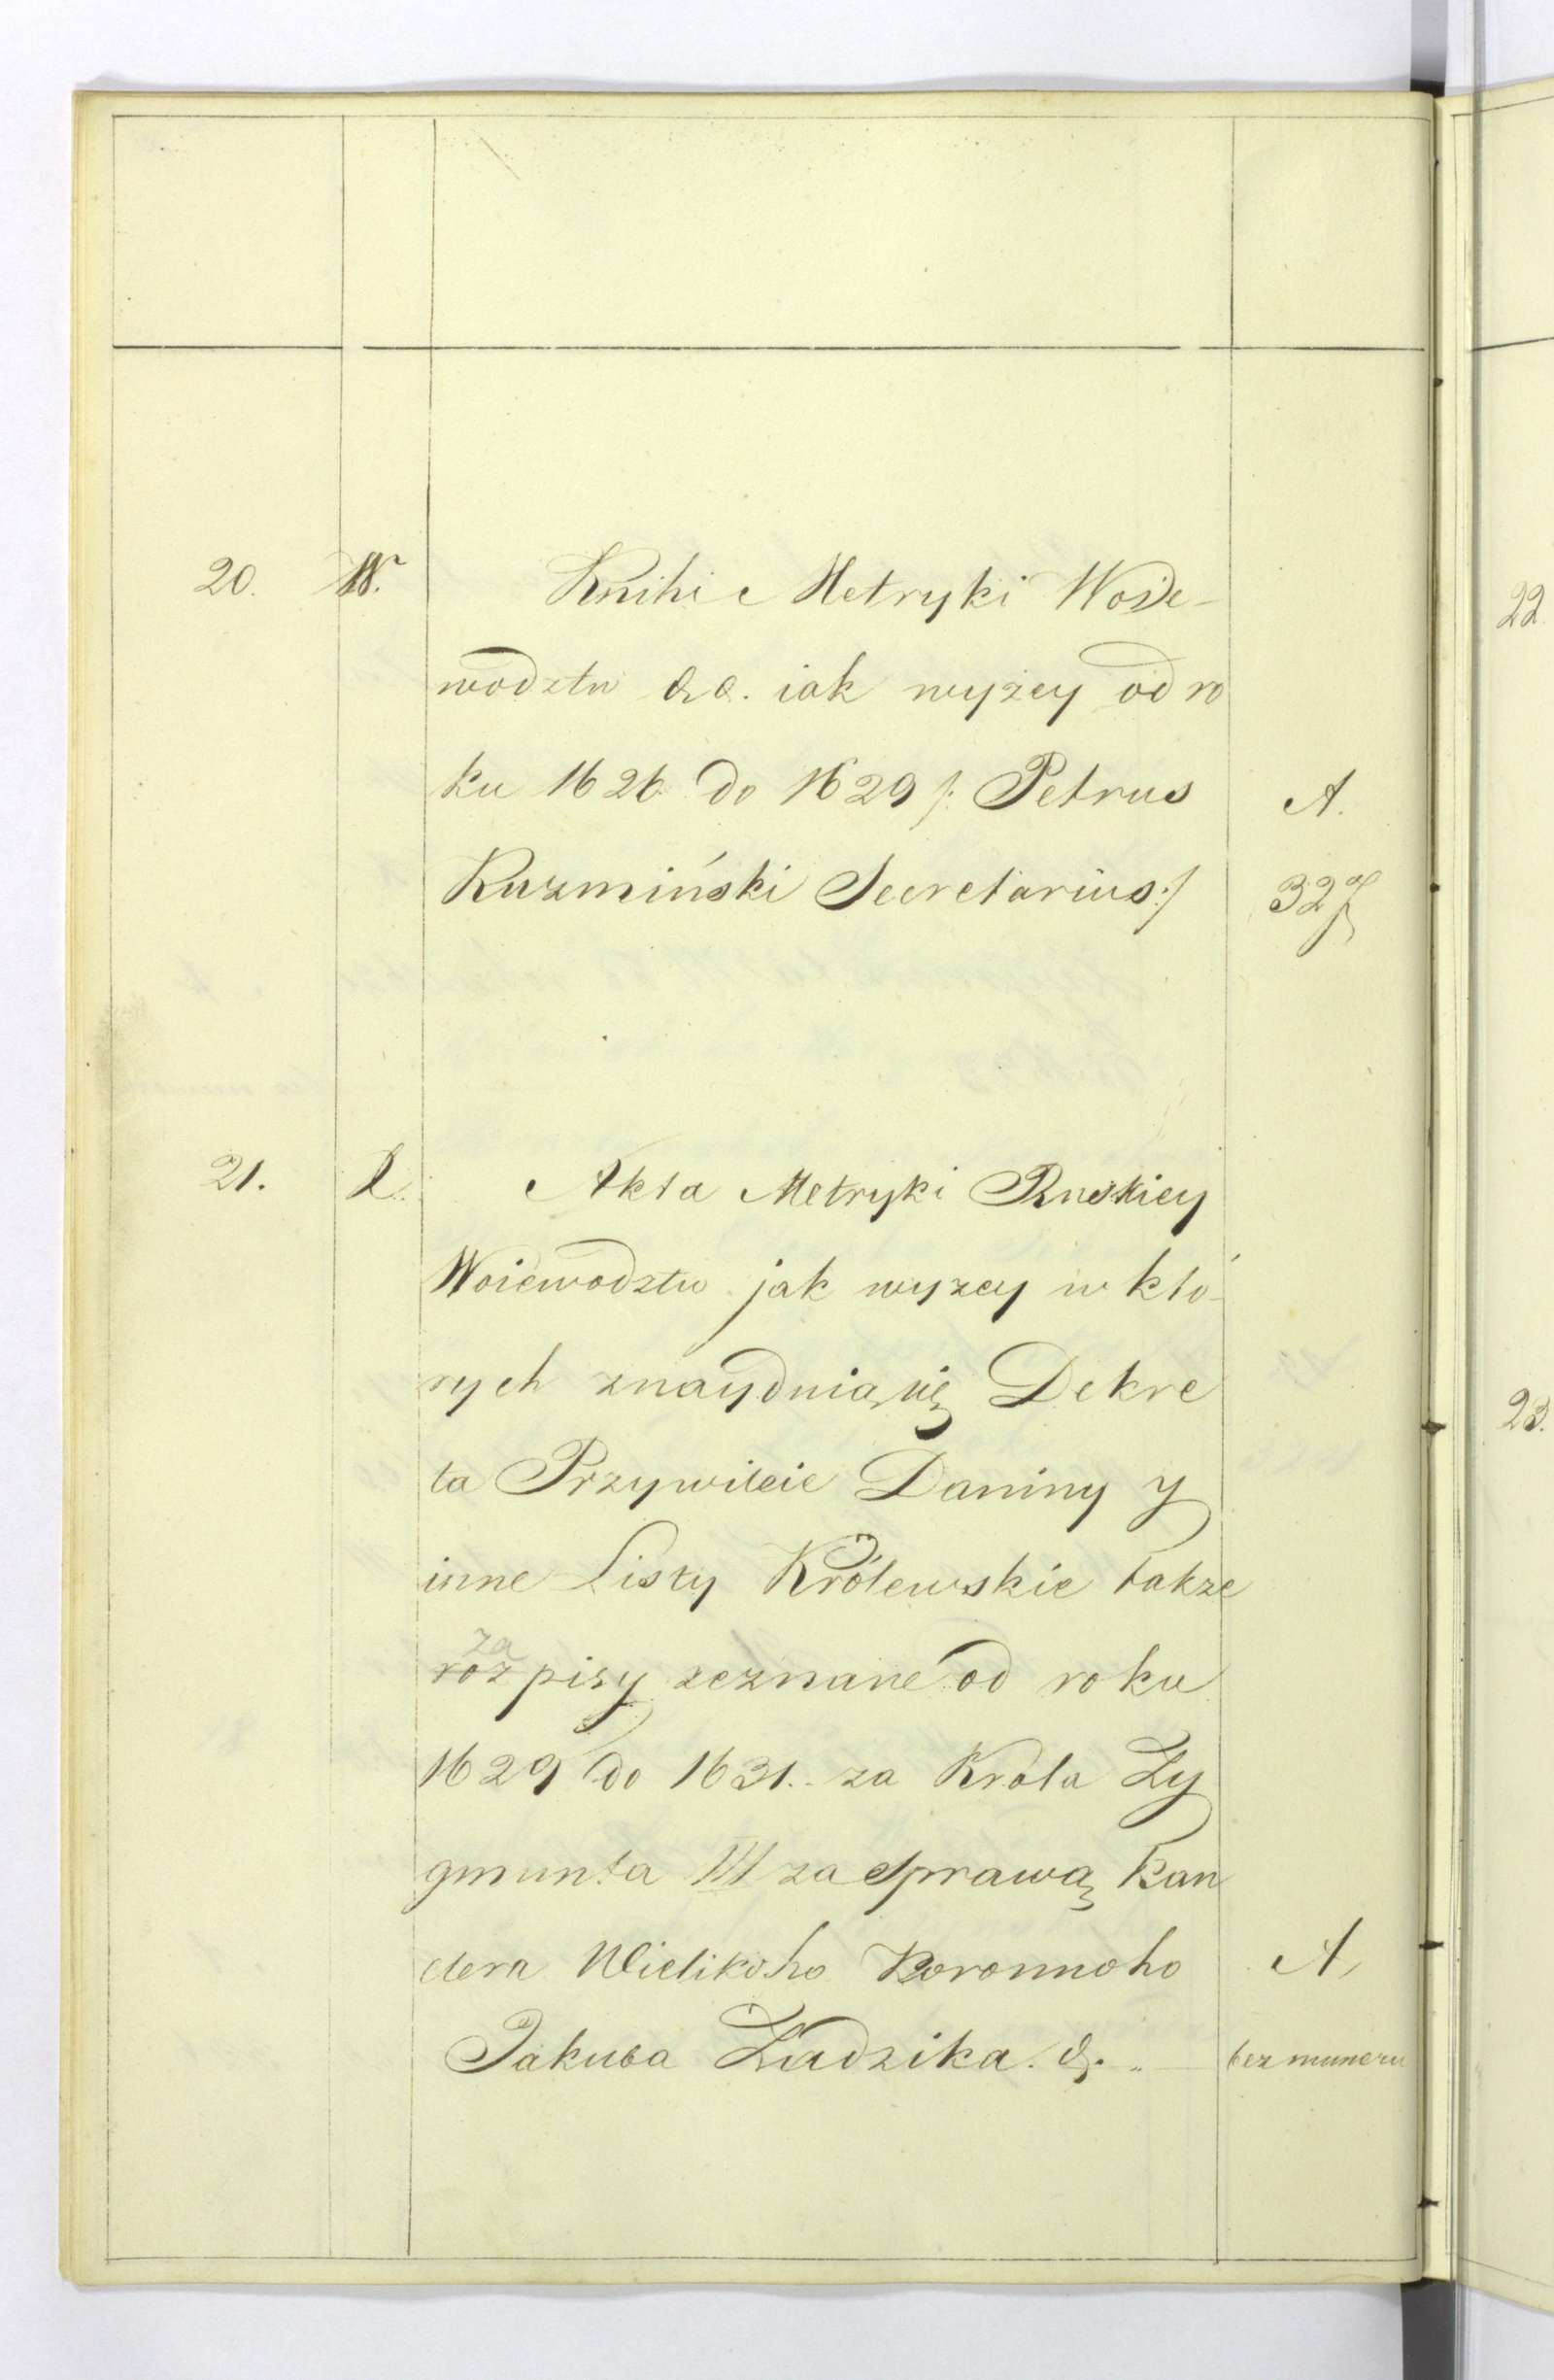 20. W. Knihi Metryki Woie-
wodztw &c. iak wyżey od ro
ku 1626 do 1629 /: Petrus A.
Kuzmiński Secretarius :/ 327
21. Akta Metryki Ruskiey
Woiewodztw jak wyzey w któ-
rych znayduią się Dekre
ta Przywileie Daniny y
inne Listy Królewskie takze
za
rozpisy zeznane od roku
1629 do 1631. za Krola Zy
gmunta III za sprawą Kan
clera Wielikoho Koronnoho A,
Jakuba Zadzika. &. bez numeru
22.
23.